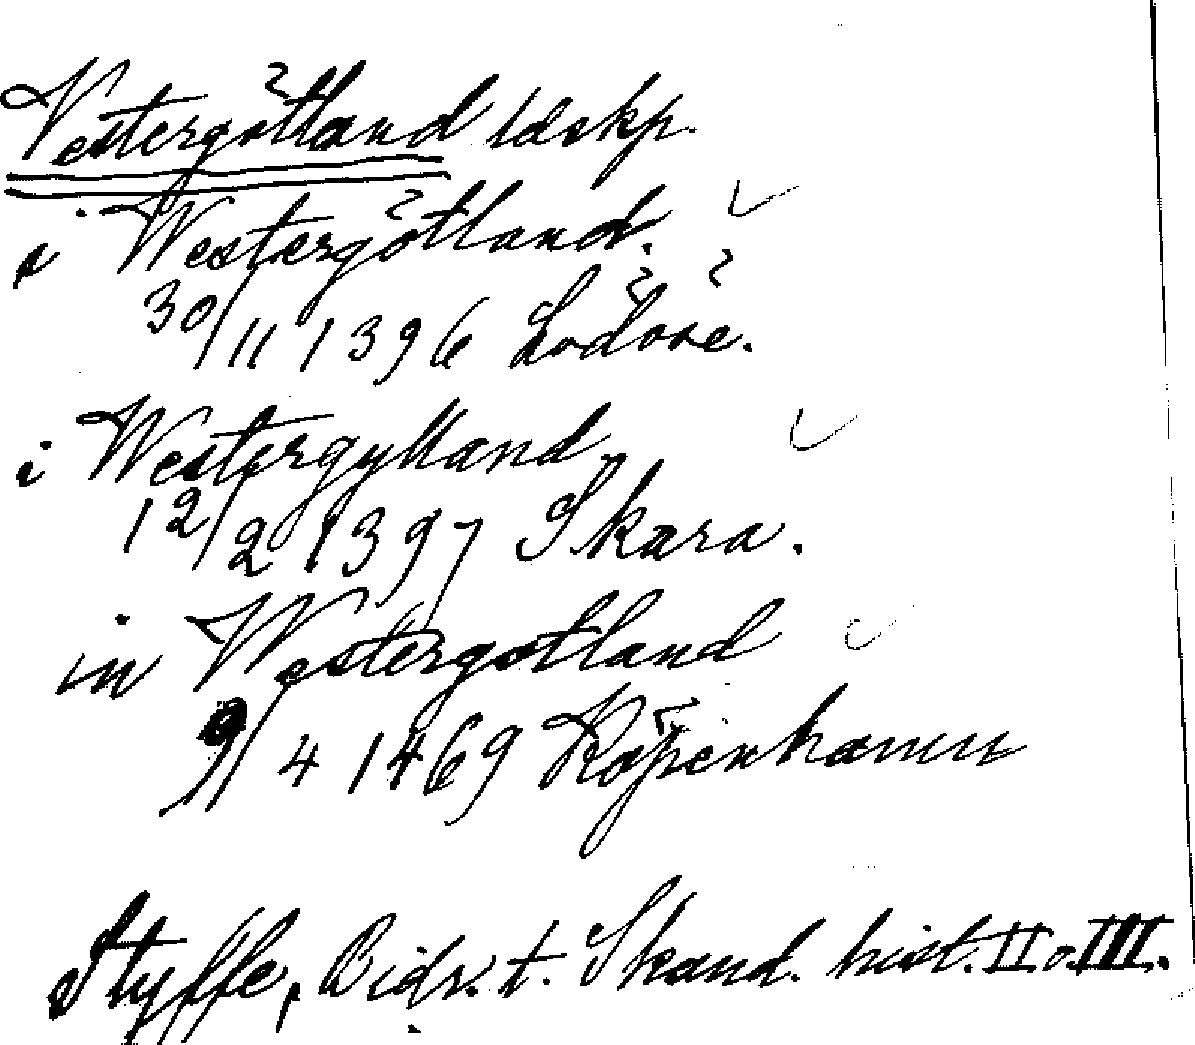 Vestergötland ldskp.
i Westergötland.
30/11 1396 Lödöse.
i Westergylland
12/2 1397 Skara.
in Westergotland
9/4 1469 Köpenhamn
Styffe, Bidr. t. Skand. hist. II o. III.